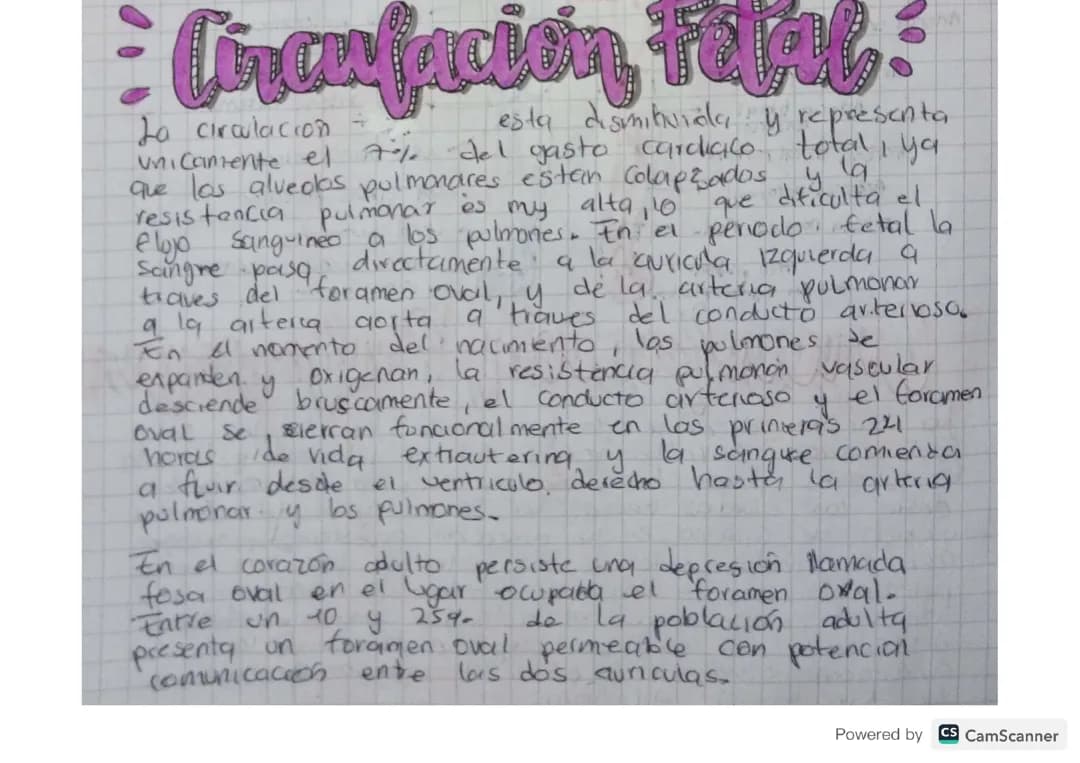 Circulación Fetal
La circulación esta disminuida y representa
unicamente el 7% del gasto cardiaco total, ya
que los alveolos pulmonares estan colapsados y la
resistencia pulmonar es muy alta, lo que dificulta el
flujo sanguineo a los pulmones. En el periodo fetal la
sangre pasa directamente a la auricula izquierda a
traves del foramen oval, y de la arteria pulmonar
a la arteria aorta a traves del conducto arterioso.
En el momento del nacimiento, los pulmones se
expanden y oxigenan, la resistencia pulmonar vascular
desciende bruscamente, el conducto arterioso y el foramen
oval se cierran funcionalmente en las primeras 24
horas de vida extrauterina y la sangre comienza
a fluir desde el ventriculo derecho hasta la arteria
pulmonar y los pulmones.
En el corazón adulto persiste una depresión llamada
fosa oval en el lugar ocupaba el foramen oval.
Entre un 10 y 25% de la población adulta
presenta un foramen oval permeable con potencial
comunicación entre las dos auriculas.
Powered by CS CamScanner